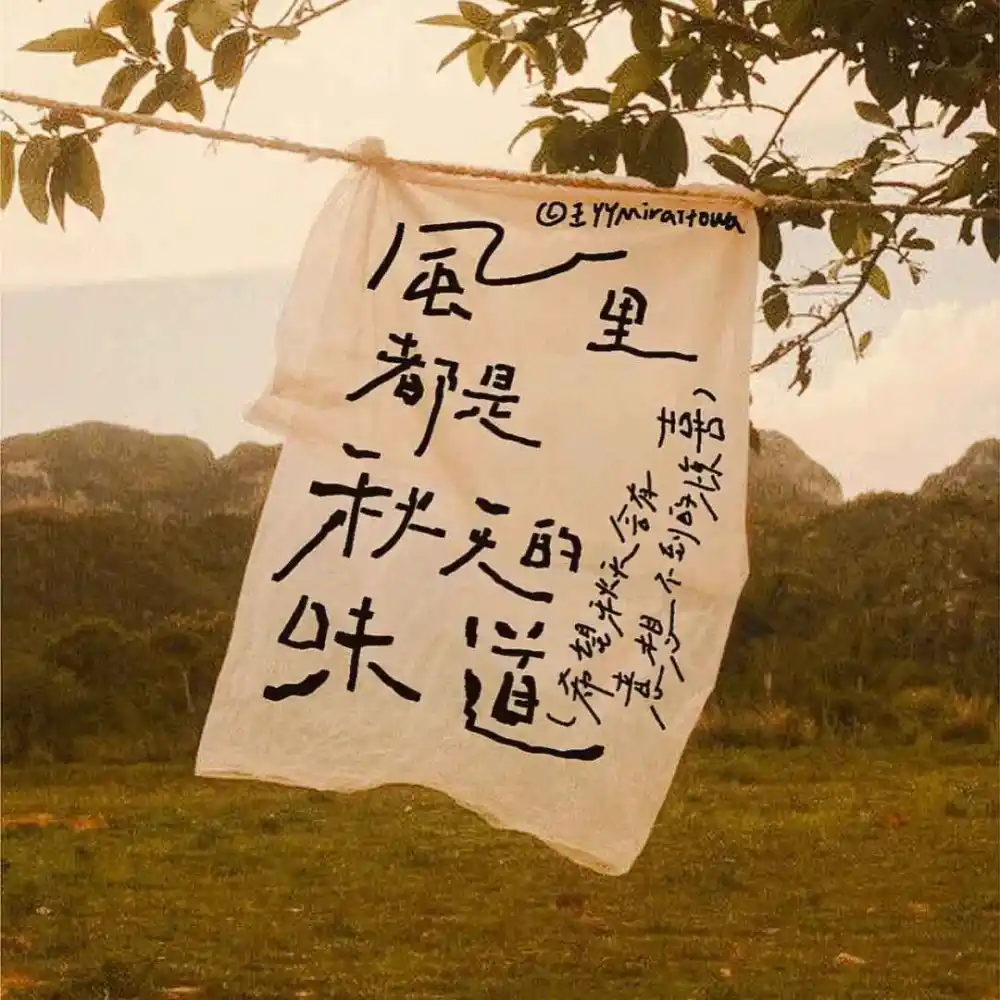 ©主YYMiraitowa
風里
都是
秋天的
味道
(希望秋天会有
意想不到的惊喜)